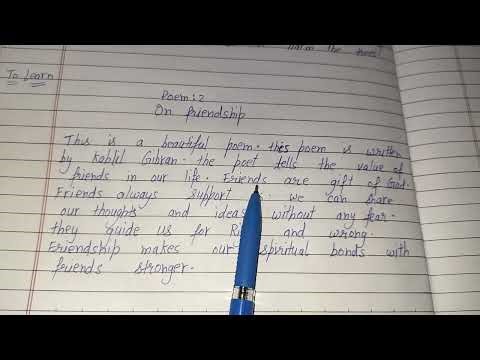 the trees
To Learn
Poem: 2
On friendship
This is a beautiful poem. this poem is written
by Kahlil Gibran. the poet tells the value of
friends in our life. Friends are gift of God.
Friends always support we can share
our thoughts and ideas without any fear.
they Guide us for and wrong.
Friendship makes our spiritual bonds with
friends stronger.